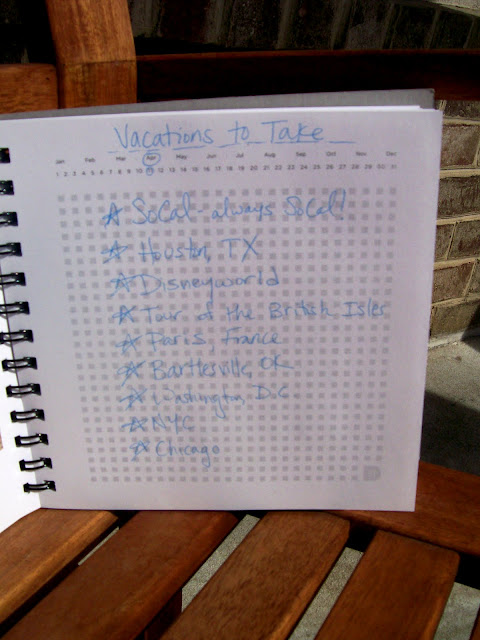 Vacations to Take
Jan Feb Mar Apr May Jun Jul Aug Sep Oct Nov Dec
1 2 3 4 5 6 7 8 9 10 11 12 13 14 15 16 17 18 19 20 21 22 23 24 25 26 27 28 29 30 31
☆ SoCal - always SoCal!
☆ Houston, TX
☆ Disneyworld
☆ Tour of the British Isles
☆ Paris, France
☆ Bartlesville, OK
☆ Washington, D.C
☆ NYC
☆ Chicago